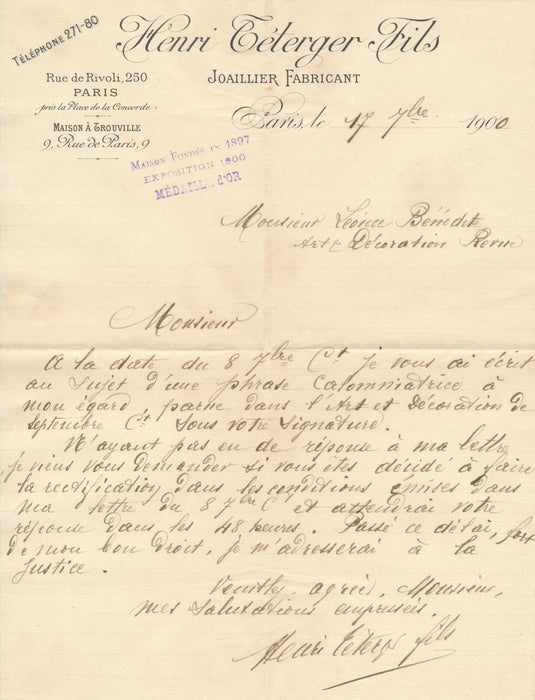 TÉLÉPHONE 271-80
Henri Téterger Fils
JOAILLIER FABRICANT
Rue de Rivoli, 250
PARIS
près la Place de la Concorde
MAISON À TROUVILLE
9, Rue de Paris, 9
Paris, le 17 7bre 1900
MAISON FONDÉE EN 1897
EXPOSITION 1900
MÉDAILLE d'OR
Monsieur Léonce Bénédite
Art & Décoration Revue
Monsieur
A la date du 8 7bre Ct je vous ai écrit
au sujet d'une phrase calommatrice à
mon égard parue dans l'Art et Décoration de
Septembre Ct sous votre signature.
N'ayant pas eu de réponse à ma lettre
je viens vous demander si vous êtes décidé à faire
la rectification dans les conditions émises dans
ma lettre du 8 7bre Ct et attendrai votre
réponse dans les 48 heures. Passé ce délai, fort
de mon bon droit, je m'adresserai à la
Justice.
Veuillez agréer, Monsieur,
mes salutations empressées.
Henri Téterger fils